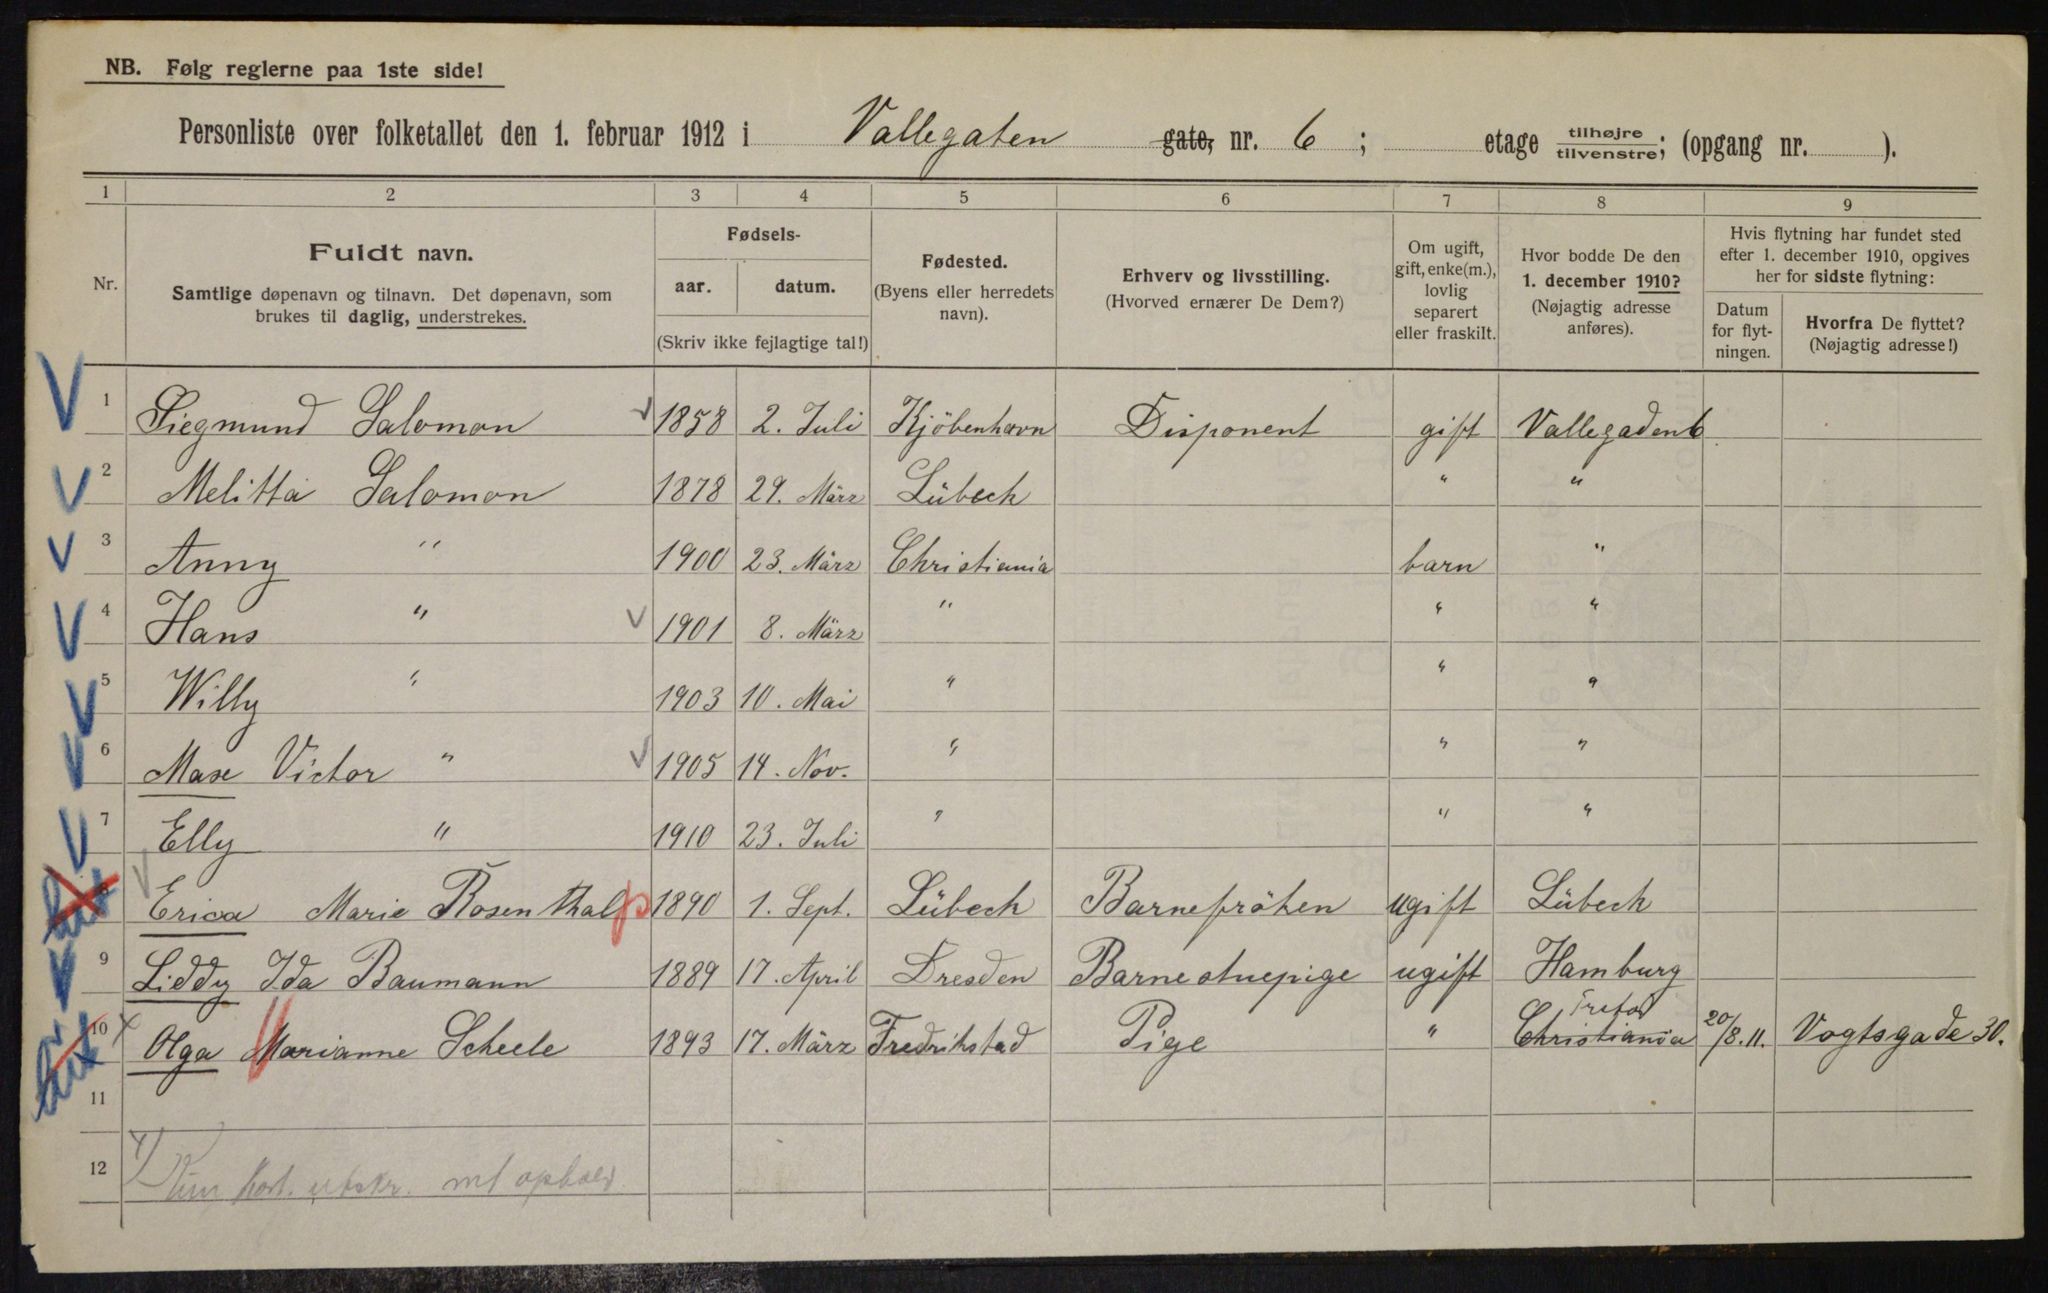 NB. Følg reglerne paa 1ste side!
Personliste over folketallet den 1. februar 1912 i Vallegaten gate, nr. 6 ; etage tilhøjre/tilvenstre; (opgang nr. ).
1 2 3 4 5 6 7 8 9
Nr.
Fuldt navn.
Samtlige døpenavn og tilnavn. Det døpenavn, som
brukes til daglig, understrekes.
Fødsels-
aar. datum.
(Skriv ikke fejlagtige tal!)
Fødested.
(Byens eller herredets
navn).
Erhverv og livsstilling.
(Hvorved ernærer De Dem?)
Om ugift,
gift, enke(m.),
lovlig
separert
eller fraskilt.
Hvor bodde De den
1. december 1910?
(Nøjagtig adresse
anføres).
Hvis flytning har fundet sted
efter 1. december 1910, opgives
her for sidste flytning:
Datum
for flyt-
ningen.
Hvorfra De flyttet?
(Nøjagtig adresse!)
1 Siegmund Salomon 1858 2. Juli Kjöbenhavn Disponent gift Vallegaden 6
2 Melitta Salomon 1878 29. März Lübeck " "
3 Anny " 1900 23. März Christiania barn "
4 Hans " 1901 8. März " " "
5 Willy " 1903 10. Mai " " "
6 Max Victor " 1905 14. Nov. " " "
7 Elly " 1910 23. Juli " " "
8 Erica Marie Rosenthal 1890 1. Sept. Lübeck Barnefröken ugift Lübeck
9 Liddy Ida Baumann 1889 17. April Dresden Barnestuepige ugift Hamburg
10 Olga Marianne Scheele 1893 17. März Fredrikstad Pige " Christiania 20/8.11. Vogtsgade 30.
11
12 Kun kort utskr. mt ophold